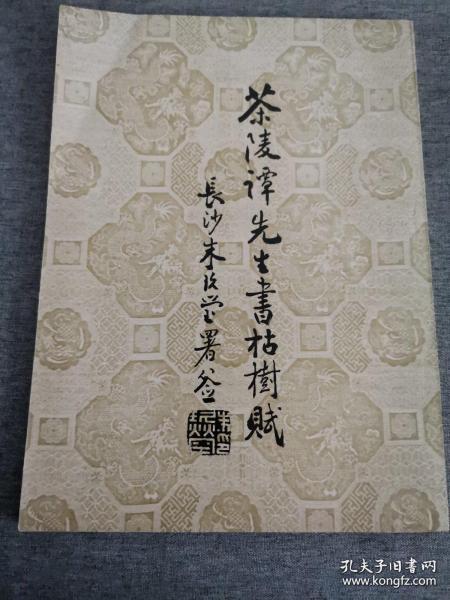 茶陵谭先生書枯樹賦
長沙朱玖瑩署签
孔夫子旧书网
www.kongfz.com